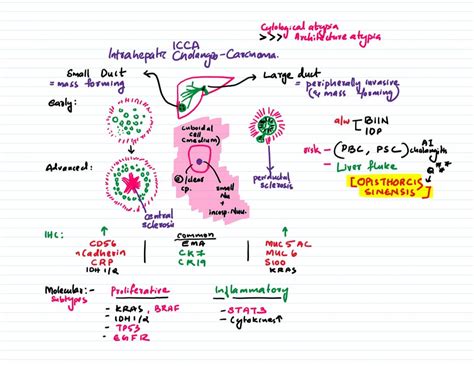 Cytological atypia
>>> Architecture atypia
ICCA
Intrahepatic Cholangio-Carcinoma.
Small Duct
= mass forming
Large duct
= peripherally invasive
(& mass forming)
Early:
cuboidal
cell
(medium)
a/w BilIN
IOP
risk - (PBC, PSC) AI
cholangitis
- Liver fluke
[OPISTHORCIS
SINENSIS]
Advanced:
/clear
cp.
small
Nu
+
incosp. Nuu.
periductal
sclerosis
central
sclerosis
IHC:
CD56
nCadherin
CRP
IDH 1/2
common
EMA
CK7
CK19
MUC 5 AC
MUC 6
S100
KRAS
Molecular:-
Subtypes
Proliferative
- KRAS, BRAF
- IDH 1/2
- TP53
- EGFR
Inflammatory
- STAT3
- Cytokines↑